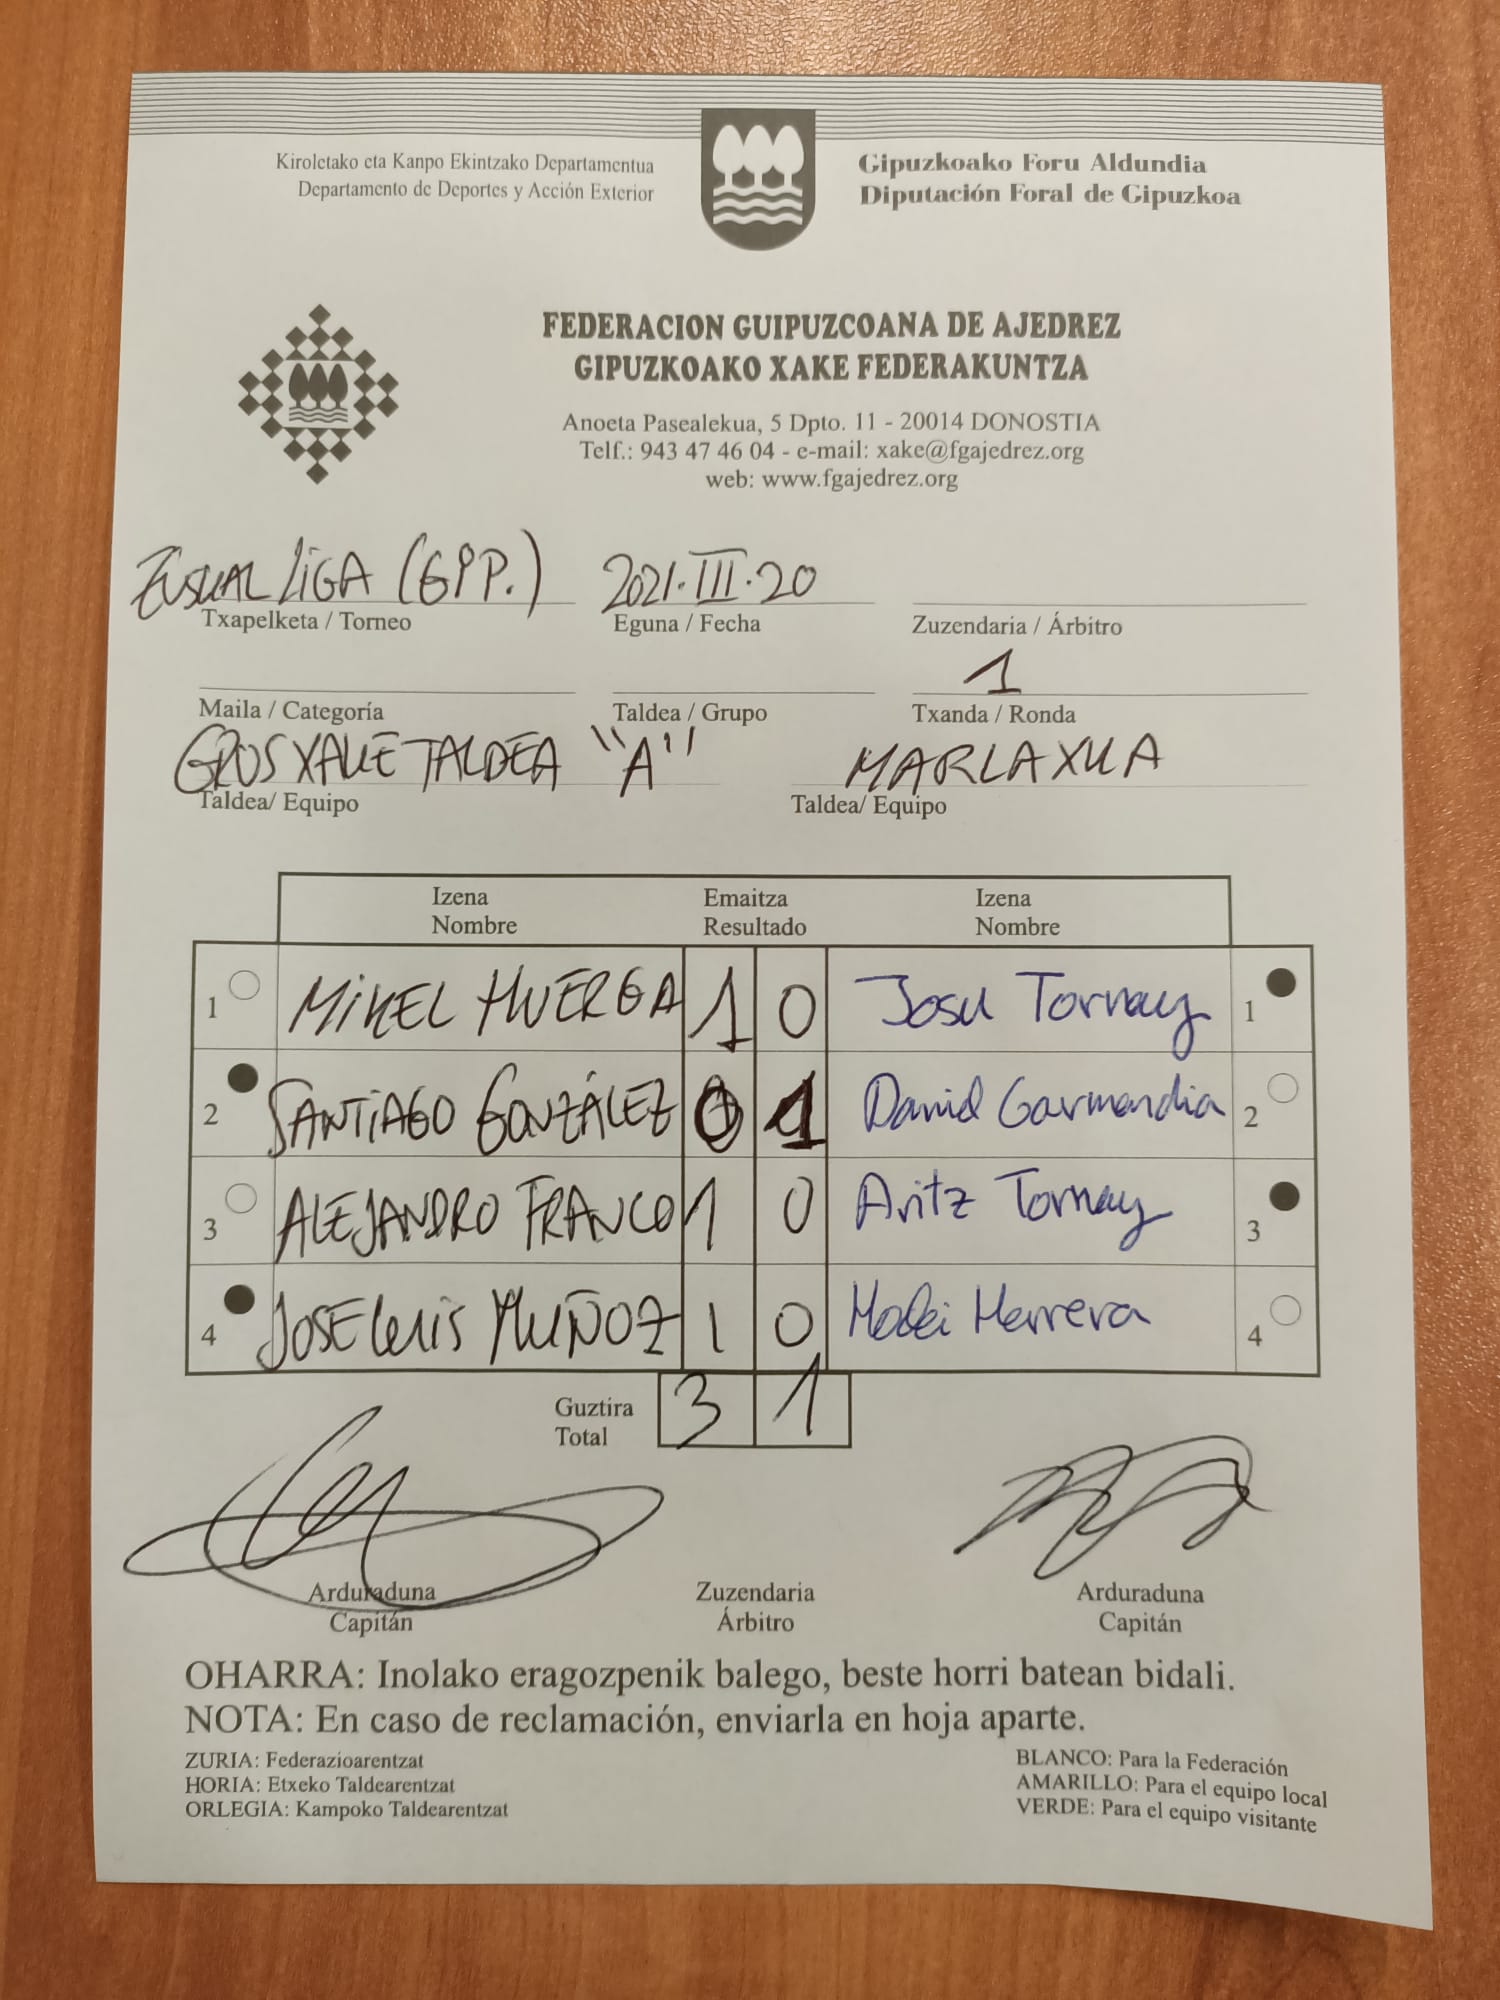 Kiroletako eta Kanpo Ekintzako Departamentua
Departamento de Deportes y Acción Exterior
Gipuzkoako Foru Aldundia
Diputación Foral de Gipuzkoa
FEDERACION GUIPUZCOANA DE AJEDREZ
GIPUZKOAKO XAKE FEDERAKUNTZA
Anoeta Pasealekua, 5 Dpto. 11 - 20014 DONOSTIA
Telf.: 943 47 46 04 - e-mail: xake@fgajedrez.org
web: www.fgajedrez.org
EUSKAL LIGA (GIP.) 2021.III.20
Txapelketa / Torneo Eguna / Fecha Zuzendaria / Árbitro
1
Maila / Categoría Taldea / Grupo Txanda / Ronda
GROS XAKE TALDEA "A" MARLAXKA
Taldea/ Equipo Taldea/ Equipo
Izena Emaitza Izena
Nombre Resultado Nombre
1 MIKEL HUERGA 1 0 Josu Tornay 1
2 SANTIAGO GONZÁLEZ 0 1 David Garmendia 2
3 ALEJANDRO FRANCO 1 0 Aritz Tornay 3
4 JOSE LUIS MUÑOZ 1 0 Herrera 4
Guztira
Total 3 1
Arduraduna Zuzendaria Arduraduna
Capitán Árbitro Capitán
OHARRA: Inolako eragozpenik balego, beste horri batean bidali.
NOTA: En caso de reclamación, enviarla en hoja aparte.
ZURIA: Federazioarentzat
HORIA: Etxeko Taldearentzat
ORLEGIA: Kampoko Taldearentzat
BLANCO: Para la Federación
AMARILLO: Para el equipo local
VERDE: Para el equipo visitante